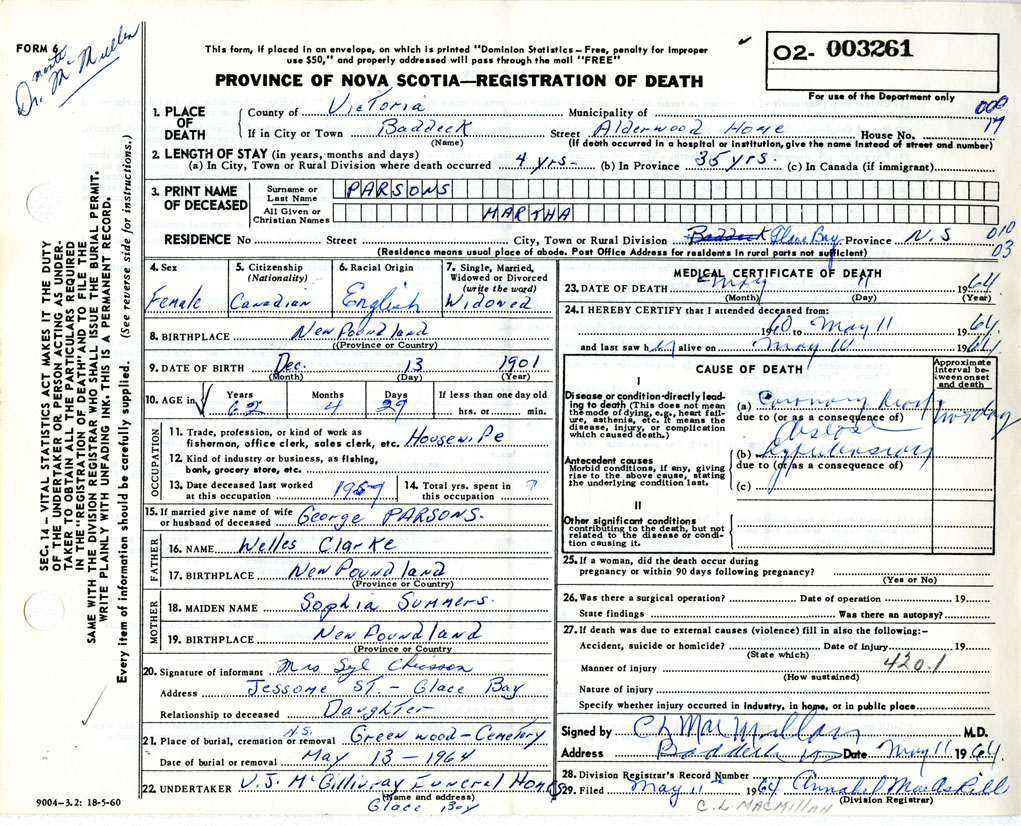 FORM 6
Dr. McMullen
This form, if placed in an envelope, on which is printed "Dominion Statistics – Free, penalty for improper
use $50," and properly addressed will pass through the mail "FREE"
PROVINCE OF NOVA SCOTIA—REGISTRATION OF DEATH
O2- 003261
For use of the Department only
1. PLACE OF DEATH
County of Victoria Municipality of
If in City or Town Baddeck Street Alderwood Home House No.
(Name) (If death occurred in a hospital or institution, give the name instead of street and number)
000
17
2. LENGTH OF STAY (in years, months and days)
(a) In City, Town or Rural Division where death occurred 4 yrs- (b) In Province 35 yrs. (c) In Canada (if immigrant)
3. PRINT NAME OF DECEASED
Surname or Last Name PARSONS
All Given or Christian Names MARTHA
RESIDENCE No Street City, Town or Rural Division Baddeck Glace Bay Province N.S
010
03
(Residence means usual place of abode. Post Office Address for residents in rural parts not sufficient)
4. Sex Female
5. Citizenship (Nationality) Canadian
6. Racial Origin English
7. Single, Married, Widowed or Divorced (write the word) Widowed
8. BIRTHPLACE Newfoundland
(Province or Country)
9. DATE OF BIRTH Dec. 13 1901
(Month) (Day) (Year)
10. AGE in Years 62 Months 4 Days 29 If less than one day old
hrs. or min.
OCCUPATION
11. Trade, profession, or kind of work as
fisherman, office clerk, sales clerk, etc. Housewife
12. Kind of industry or business, as fishing,
bank, grocery store, etc.
13. Date deceased last worked at this occupation 1957
14. Total yrs. spent in this occupation ?
15. If married give name of wife
or husband of deceased George PARSONS.
FATHER
16. NAME Welles Clarke
17. BIRTHPLACE Newfoundland
(Province or Country)
MOTHER
18. MAIDEN NAME Sophia Summers.
19. BIRTHPLACE Newfoundland
(Province or Country)
20. Signature of informant Mrs Syl Chiasson
Address Jessome ST. – Glace Bay
Relationship to deceased Daughter
21. Place of burial, cremation or removal N.S. Greenwood - Cemetery
Date of burial or removal May 13 – 1964
22. UNDERTAKER V.J. McGillivray Funeral Home
(Name and address)
Glace Bay
MEDICAL CERTIFICATE OF DEATH
23. DATE OF DEATH May 11 1964
(Month) (Day) (Year)
24. I HEREBY CERTIFY that I attended deceased from:
1960 to May 11 1964
and last saw her alive on May 10 1964
CAUSE OF DEATH
Approximate interval between onset and death
I
Disease or condition directly leading to death (This does not mean the mode of dying, e.g., heart failure, asthenia, etc. It means the disease, injury, or complication which caused death.)
(a) Coronary
due to (or as a consequence of)
Antecedent causes
Morbid conditions, if any, giving rise to the above cause, stating the underlying condition last.
(b) Hypertension
due to (or as a consequence of)
(c)
II
Other significant conditions contributing to the death, but not related to the disease or condition causing it.
25. If a woman, did the death occur during
pregnancy or within 90 days following pregnancy?
(Yes or No)
26. Was there a surgical operation? Date of operation 19
State findings Was there an autopsy?
27. If death was due to external causes (violence) fill in also the following:–
Accident, suicide or homicide? Date of injury 19
(State which)
Manner of injury 420.1
(How sustained)
Nature of injury
Specify whether injury occurred in industry, in home, or in public place
Signed by C L MacMillan M.D.
Address Baddeck NS Date May 11 1964
28. Division Registrar's Record Number
29. Filed May 11th 1964 Annabel MacAskill
(Division Registrar)
C. L. MACMILLAN
SEC. 14 – VITAL STATISTICS ACT MAKES IT THE DUTY
OF THE UNDERTAKER OR PERSON ACTING AS UNDERTAKER
TO OBTAIN ALL THE PARTICULARS REQUIRED
IN THE "REGISTRATION OF DEATH" AND TO FILE THE
SAME WITH THE DIVISION REGISTRAR WHO SHALL ISSUE THE BURIAL PERMIT.
WRITE PLAINLY WITH UNFADING INK. THIS IS A PERMANENT RECORD.
Every item of information should be carefully supplied. (See reverse side for instructions.)
9004–3.2: 18-5-60